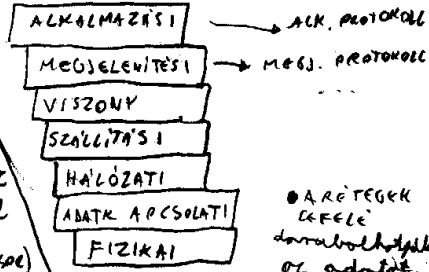 ALKALMAZÁSI
ALK. PROTOKOLL
MEGJELENÍTÉSI
MEGJ. PROTOKOLL
...
VISZONY
SZÁLLÍTÁSI
HÁLÓZATI
ADATK APCSOLATI
FIZIKAI
• A RÉTEGEK
LEFELÉ
darabolhatják
az adatot